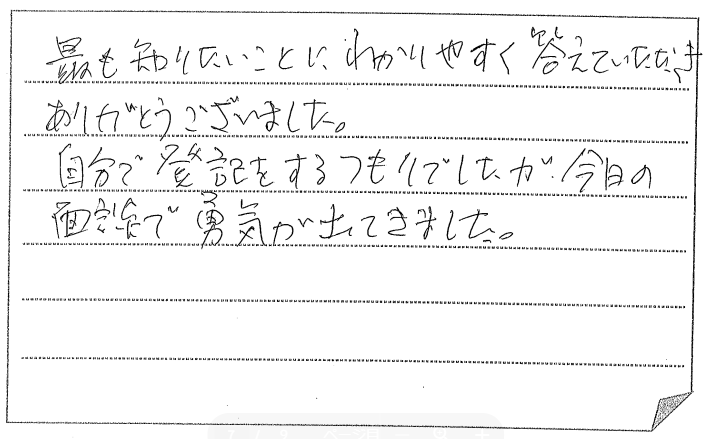 最も知りたいことに、わかりやすく答えていただき
ありがとうございました。
自分で登記をするつもりでしたが、今日の
面談で勇気が出てきました。